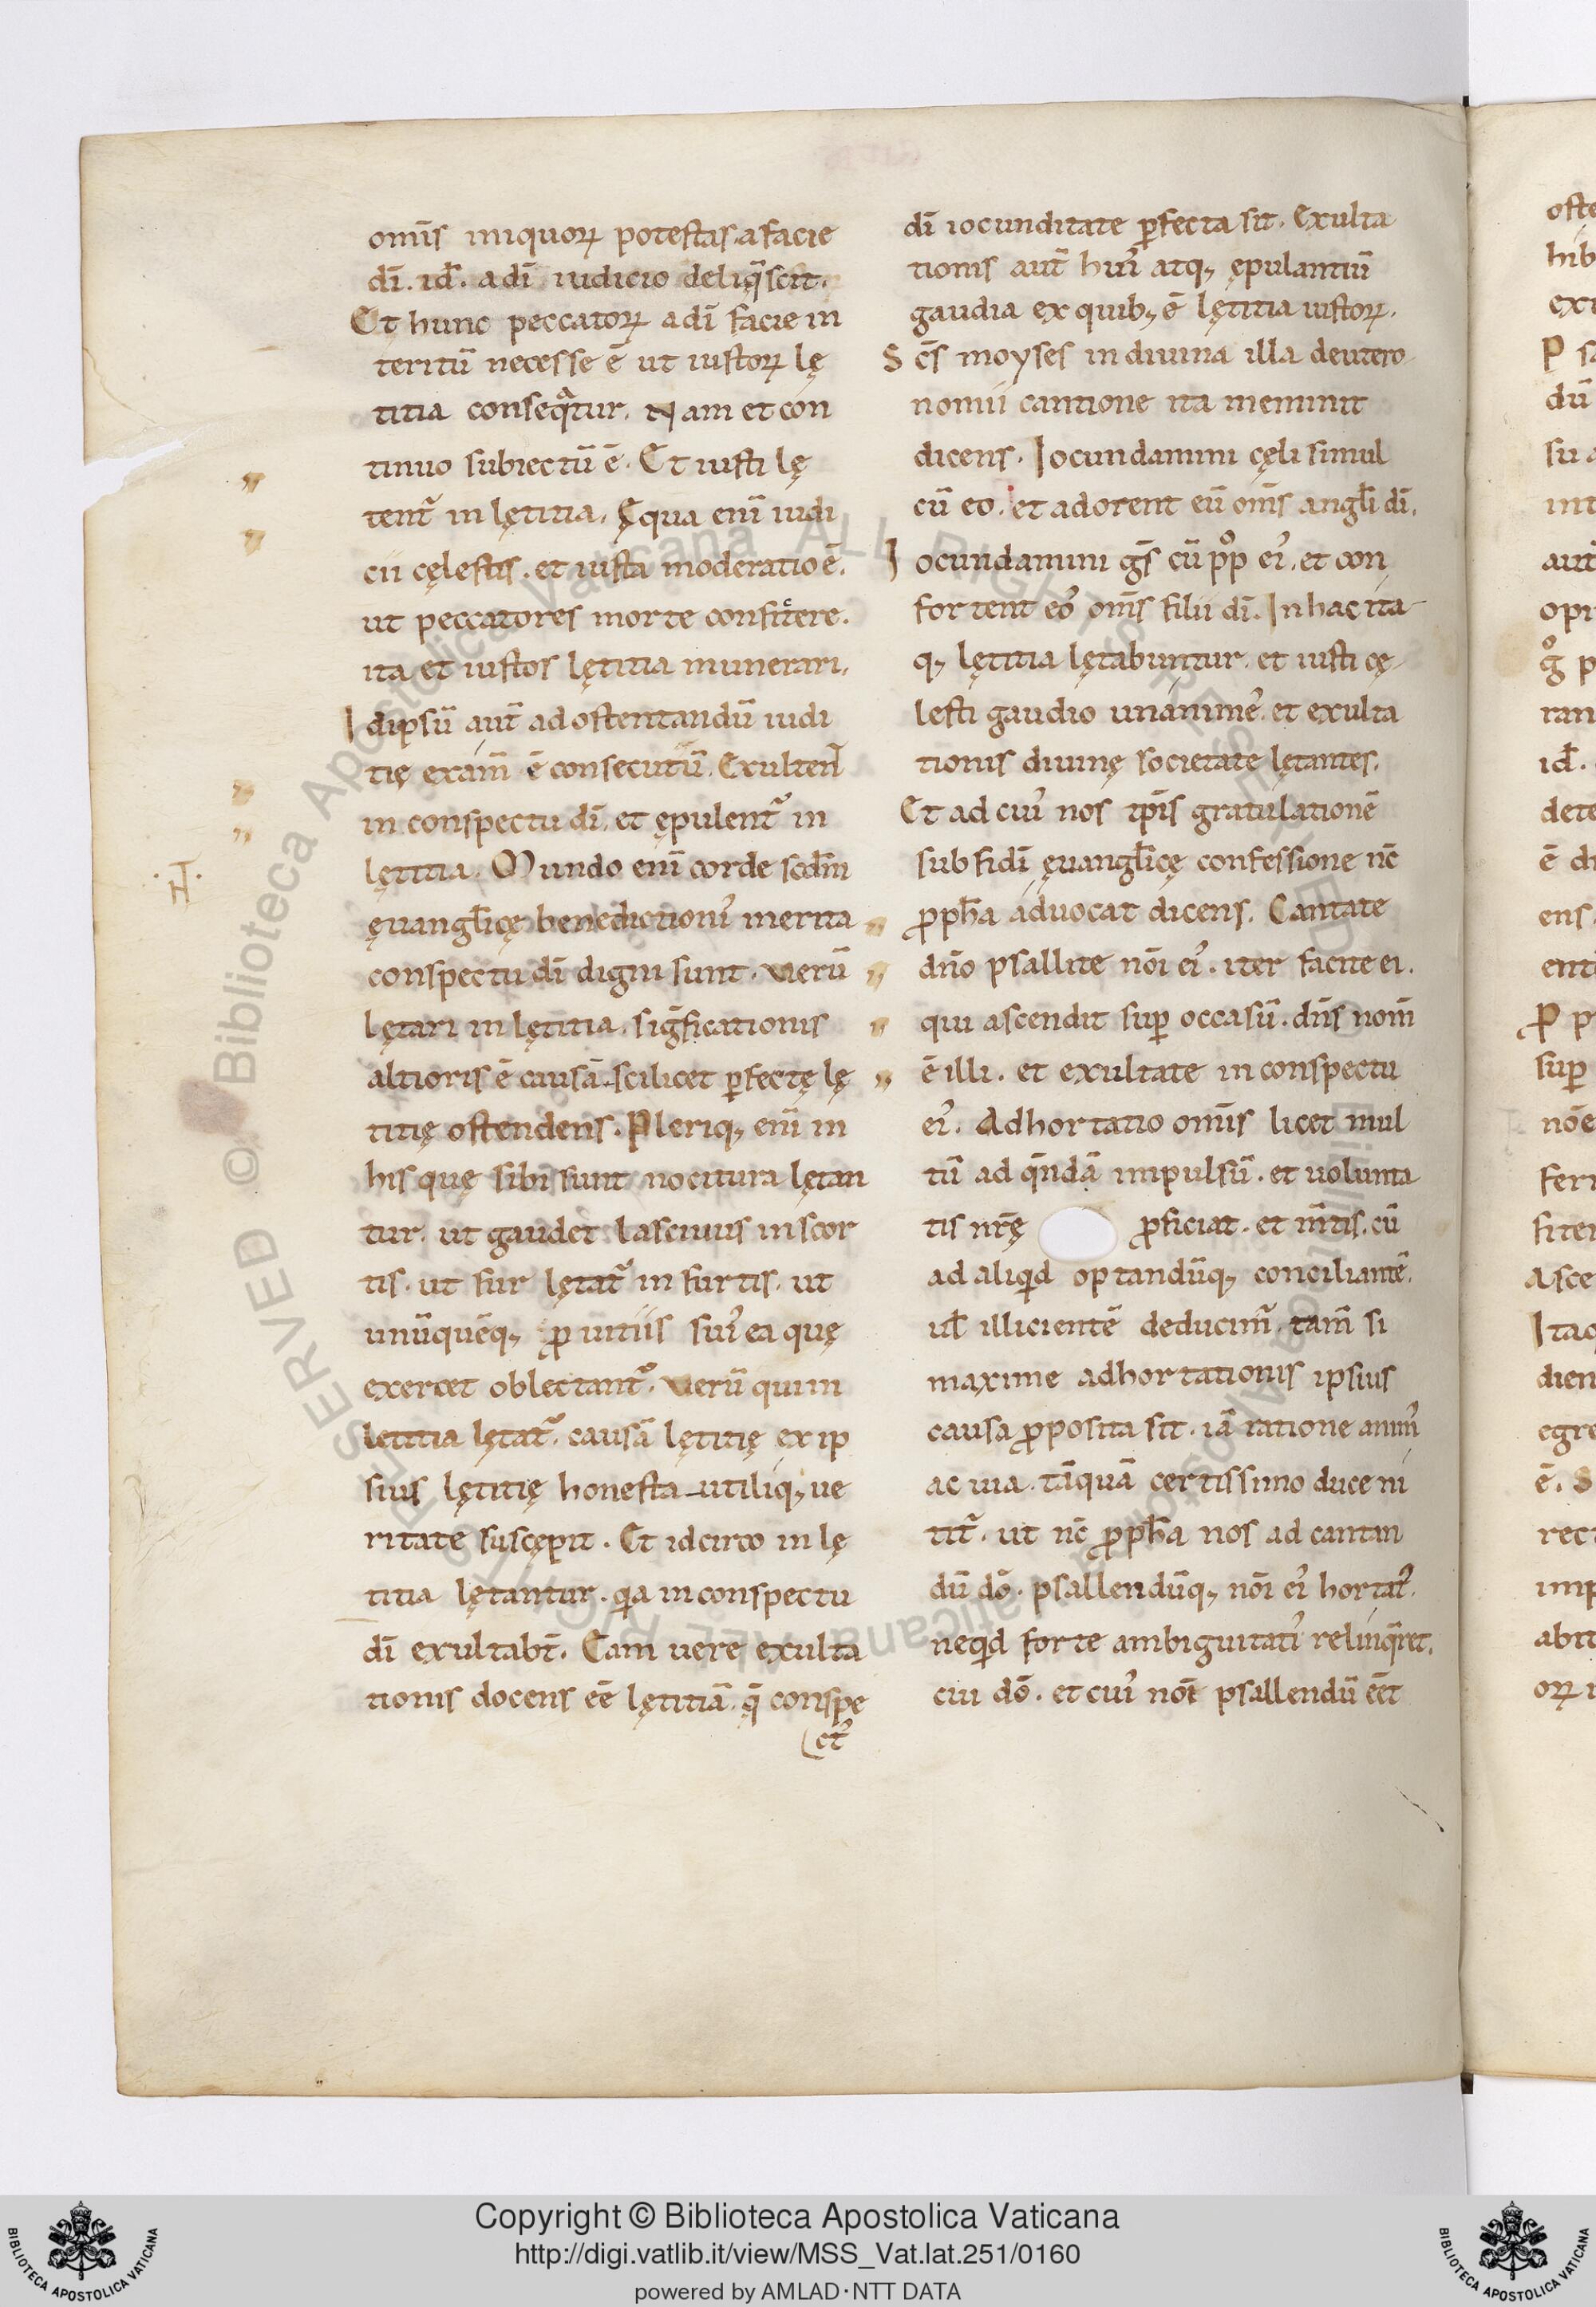 omīs iniquoꝝ potestas. a facie
dī. id̄. a dī iudicio deliq̄scit.
Et hunc peccatoꝝ a dī facie in
teritū necesse ē ut iustoꝝ lę
titia conseq̄tur. Nam et con
tinuo subiectū ē. Et iusti lę
tent᷑ in lętitia. Ęqua enī iudi
cii cęlestis. et iusta moderatio ē.
ut peccatores morte
ita et iustos lętitia munerari.
Idipsū aut̄ ad ostentandū iudi
tię exam̄ ē consecutū. Exulten̄
in conspectu dī. et ępulent᷑ in
lętitia. Mundo enī corde scd̄m
ęuangl̄icę benedictioni᷑ merita
conspectu dī digni sunt. Verū
lętari in lętitia. sig̅ficationis
altioris ē causā. scilicet ꝑfectę lę
titię ostendens. Pleriq; enī in
his quę sibi sunt nocitura lętan
tur. ut gaudet lasciuus in scor
tis. ut fur lętat᷑ in furtis. ut
unūquēq; ꝓ uitiis sui᷑ ea quę
exercet oblectant᷑. Verū qui in
letitia lętat᷑. causā lętitię ex ip
sius lętitię honesta utiliq; ue
ritate suscępit. Et idcirco in lę
titia lętantur. qa in conspectu
dī exultabt̄. Eam uere exulta
tionis docens eē lętitiā. q̄ conspe
ct᷑
dī iocunditate ꝑfecta sit. Exulta
tionis aut̄ hui᷑ atq; ępulantiū
gaudia ex quib; ē lętitia iustoꝝ.
Sc̄s moyses in diuina illa deutero
nomii cantione ita meminit
dicens. Iocundamini cęli simul
cū eo. et adorent eū om̄s angl̄i dī.
Iocundamini g̅s cū pꝰp ei᷑. et con
fortent eoꝰ om̄s filii dī. In hac ita
q; lętitia lętabuntur. et iusti cę
lesti gaudio unanime᷑. et exulta
tionis diuinę societate lętantes.
Et ad cui᷑ nos tp̄is gratulationē
sub fidī ęuangl̄icę confessione nc̄
ꝓph̄a aduocat dicens. Cantate
dn̄o psallite nōi ei᷑. iter facite ei.
qui ascendit suꝑ occasū. dn̄s nom̄
ē illi. et exultate in conspectu
ei᷑. Adhortatio omīs licet mul
tū ad q̄ndā impulsū. et uolunta
tis nrę̄ ꝓficiat. et m̄tis. cū
ad aliqid optandūq; conciliantē.
ul̄ illicientē deducim᷑. tam̄ si
maxime adhortationis ipsius
causa ꝓposita sit. iā ratione animi᷑
ac uia. tāquā certissimo duce ni
tit᷑. ut nc̄ ꝓph̄a nos ad cantan
dū dō. psallendūq; nōi ei᷑ hortat᷑.
neqid forte ambiguitati᷑ relinq̄ret.
cui dō. et cui᷑ nōi psallendū eēt
Copyright © Biblioteca Apostolica Vaticana
http://digi.vatlib.it/view/MSS_Vat.lat.251/0160
powered by AMLAD·NTT DATA
BIBLIOTECA APOSTOLICA VATICANA
BIBLIOTECA APOSTOLICA VATICANA